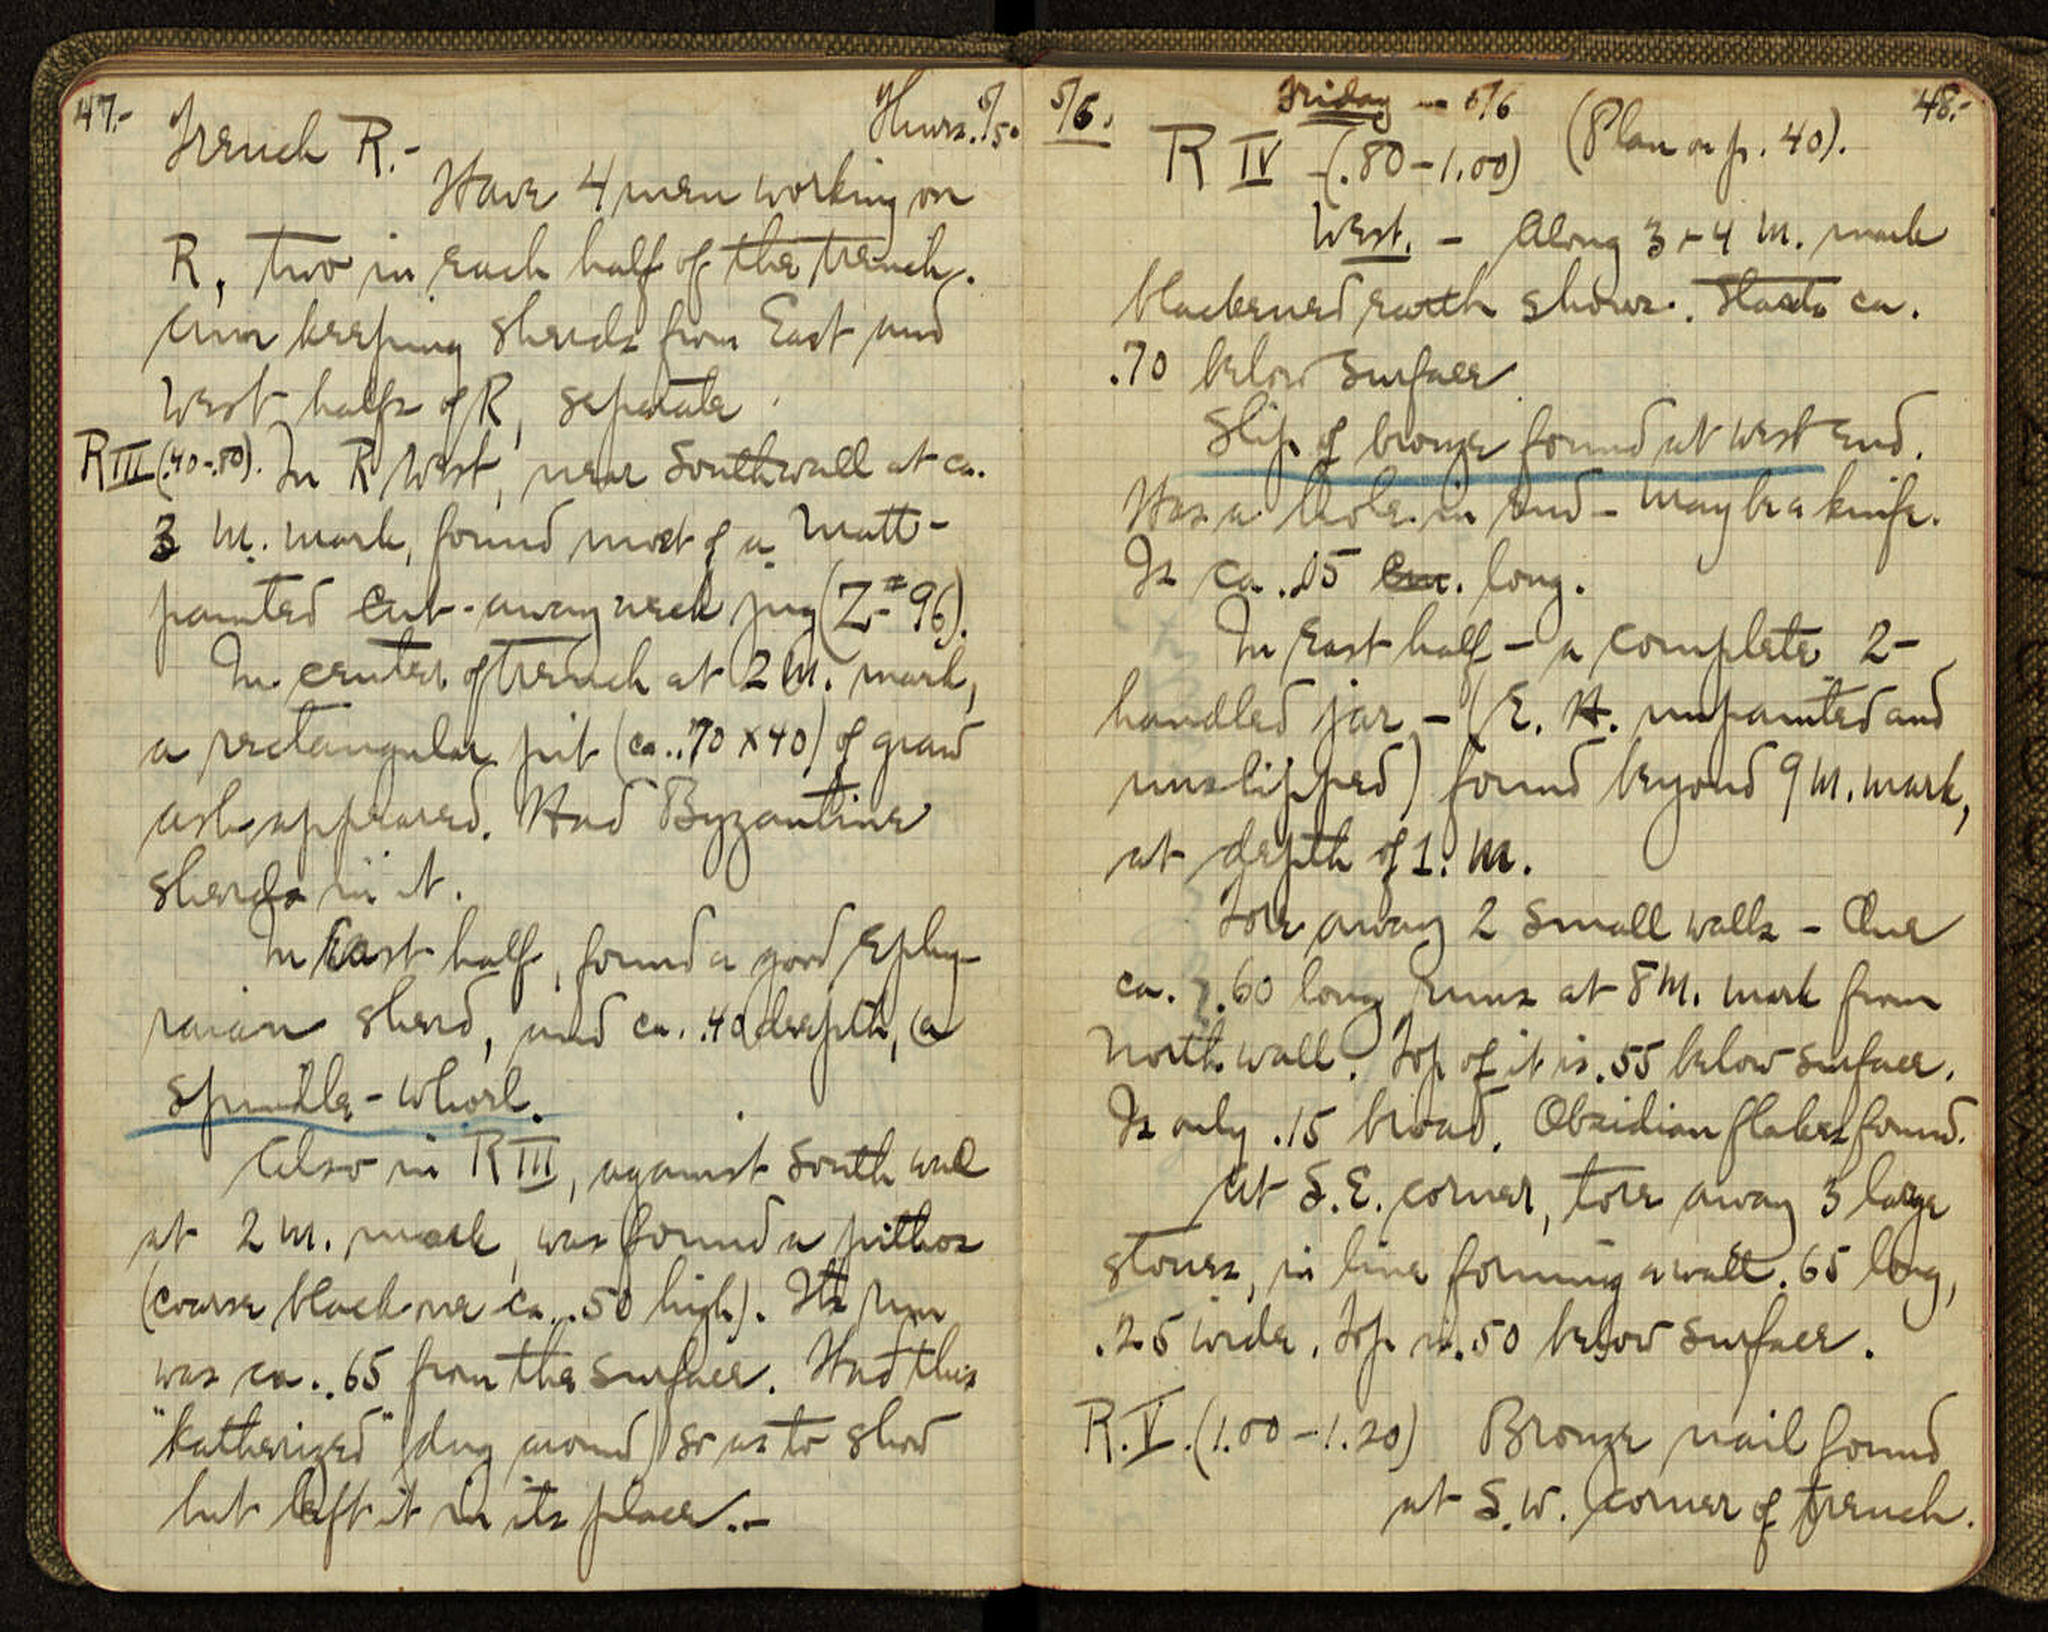 47.-
Trench R.- Thurs. 5/5.
Have 4 men working on
R, two in each half of the trench.
Am keeping sherds from East and
West halfs of R, separate.
R III (.40-.80). In R West, near South wall at ca.
3 m. mark, found most of a Matt-
painted cut-away neck jug (Z-#96).
In center of trench at 2 m. mark,
a rectangular pit (ca. .70 x 40) of
ash appeared. Had Byzantine
sherds in it.
In East half, found a good Ephy-
raian sherd, and ca. .40 depth, a
spindle-whorl.
Also in R III, against South wall
at 2 m. mark, was found a pithos
(coarse black one ca. .50 high). Its rim
was ca. .65 from the surface. Had this
"katherized" (dug around) so as to show
but left it in its place.-
5/6. Friday - 5/6 48.-
R IV - (.80-1.00) (Plan on p. 40).
West. - Along 3 + 4 m. mark
blackened earth shows. Starts ca.
.70 below surface.
Slip of bronze found at west end.
Has a hole in end - may be a knife.
Is ca. .15 cm. long.
In East half - a complete 2-
handled jar - (E. H. unpainted and
unslipped) found beyond 9 m. mark,
at depth of 1. m.
Tore away 2 small walls - One
ca. .60 long runs at 8 m. mark from
North wall. Top of it is .55 below surface.
Is only .15 broad. Obsidian flakes found.
At S.E. corner, tore away 3 large
stones, in line forming a wall .65 long,
.25 wide. Top is .50 below surface.
R. V. (1.00-1.20) Bronze nail found
at S.W. corner of trench.